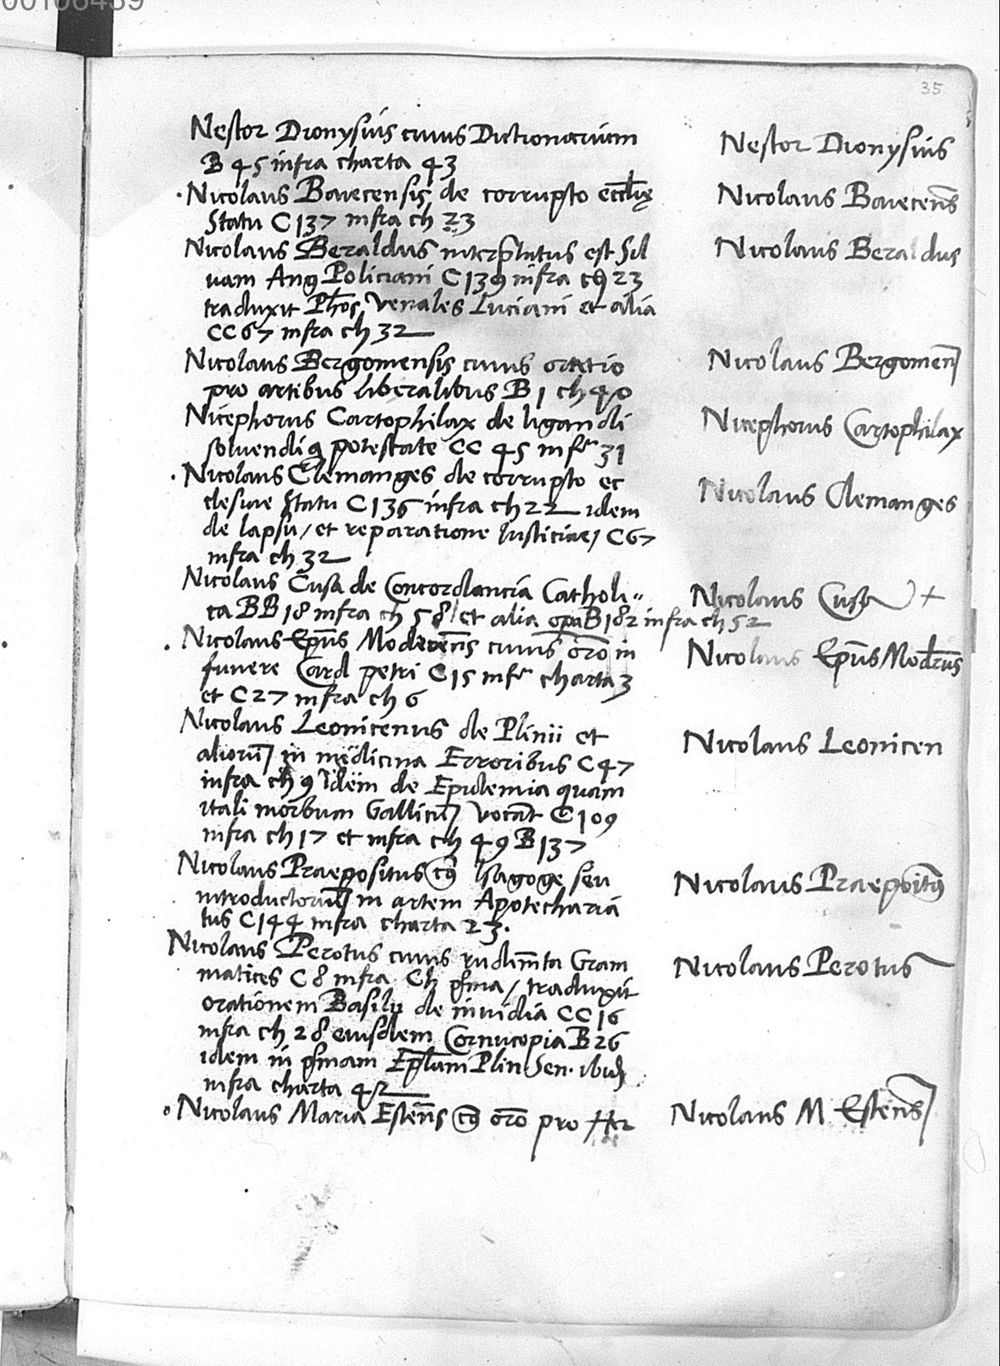 00106459
35
Nestor Dionysius cuius Dictionarium
B 45 infra charta 43
Nestor Dionysius
·Nicolaus Baiecensis de corrupto eccl̅ię
Statu C 137 infra ch 23
Nicolaus Baiecens̅
Nicolaus Beraldus interp̅tatus est Sil
uam Ang Policiani C 139 infra ch 23
traduxit Ph̅os Venales Luciani et alia
CC 67 infra ch 32
Nicolaus Beraldus
Nicolaus Bergomensis cuius oratio
pro artibus liberalibus B 1 ch 40
Nicolaus Bergomen
Nicephorus Cartophilax de ligandi
soluendi q potestate CC 45 infr 31
Nicephorus Cartophilax
·Nicolaus Clemanges de corrupto ec
clesiae Statu C 136 infra ch 22 idem
de lapsu / et reparatione Iusticiae / C 67
infra ch 32
Nicolaus Clemanges
Nicolaus Cusa de Concordancia Catholi〃
ca BB 18 infra ch 58 / et alia opa B 182 infra ch 52
Nicolaus Cusa +
·Nicolaus Ep̅us Modrens̅ cuius or̅o in
funere Card petri C 15 infr charta 3
et C 27 infra ch 6
Nicolaus Ep̅us Modrus
Nicolaus Leonicenus de Plinii et
aliorū in medicina Erroribus C 47
infra ch 9 Idem de Epidemia quam
itali morbum Gallicū vocāt C 109
infra ch 17 et infra ch 49 B 137
Nicolaus Leonicen
Nicolaus Praepositus cꝰ Isagoge seu
introductoriū in artem Apotecharia
tus C 144 infra charta 23.
Nicolaus Praepoitꝰ
Nicolaus Perotus cuius rudim̅ta Gram
matices C 8 infra Ch p̅ma / traduxit
orationem Basilij de inuidia CC 16
infra ch 28 eiusdem Cornucopia B 26
idem in p̅mam Ep̅lam Plin Sen. ibid
infra charta 42
Nicolaus Perotus
·Nicolaus Maria Estens̅ cꝰ or̅o pro Her
Nicolaus M Estens̅